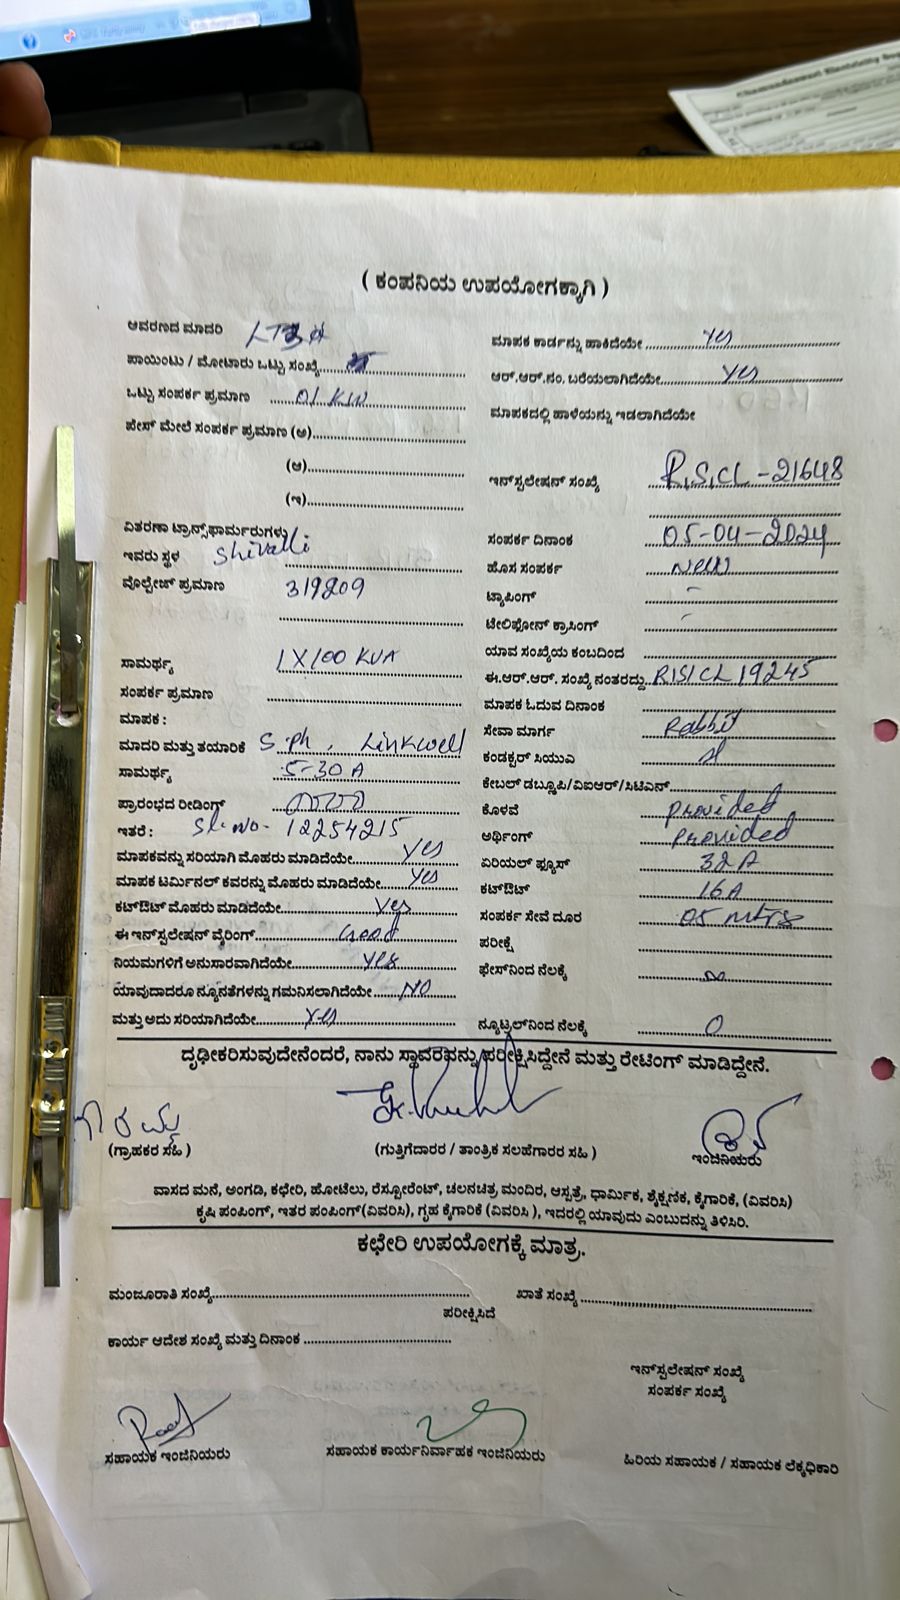 ( ಕಂಪನಿಯ ಉಪಯೋಗಕ್ಕಾಗಿ )
ಆವರಣದ ಮಾದರಿ
ಪಾಯಿಂಟು / ಮೋಟಾರು ಒಟ್ಟು ಸಂಖ್ಯೆ
ಒಟ್ಟು ಸಂಪರ್ಕ ಪ್ರಮಾಣ 01 KW
ಪೇಸ್ ಮೇಲೆ ಸಂಪರ್ಕ ಪ್ರಮಾಣ (ಅ)
(ಆ)
(ಇ)
ವಿತರಣಾ ಟ್ರಾನ್ಸ್‌ಫಾರ್ಮರುಗಳು
ಇವರು ಸ್ಥಳ Shivalli
ವೊಲ್ಟೇಜ್ ಪ್ರಮಾಣ 319209
ಸಾಮರ್ಥ್ಯ 1X100 KVA
ಸಂಪರ್ಕ ಪ್ರಮಾಣ
ಮಾಪಕ :
ಮಾದರಿ ಮತ್ತು ತಯಾರಿಕೆ S.ph, Linkwell
ಸಾಮರ್ಥ್ಯ 5-30 A
ಪ್ರಾರಂಭದ ರೀಡಿಂಗ್
ಇತರೆ : Sl.No- 12254215
ಮಾಪಕವನ್ನು ಸರಿಯಾಗಿ ಮೊಹರು ಮಾಡಿದೆಯೇ yes
ಮಾಪಕ ಟರ್ಮಿನಲ್ ಕವರನ್ನು ಮೊಹರು ಮಾಡಿದೆಯೇ yes
ಕಟ್‌ಔಟ್ ಮೊಹರು ಮಾಡಿದೆಯೇ yes
ಈ ಇನ್‌ಸ್ಪಲೇಷನ್ ವೈರಿಂಗ್ Good
ನಿಯಮಗಳಿಗೆ ಅನುಸಾರವಾಗಿದೆಯೇ yes
ಯಾವುದಾದರೂ ನ್ಯೂನತೆಗಳನ್ನು ಗಮನಿಸಲಾಗಿದೆಯೇ NO
ಮತ್ತು ಅದು ಸರಿಯಾಗಿದೆಯೇ yes
ಮಾಪಕ ಕಾರ್ಡನ್ನು ಹಾಕಿದೆಯೇ yes
ಆರ್.ಆರ್.ನಂ. ಬರೆಯಲಾಗಿದೆಯೇ yes
ಮಾಪಕದಲ್ಲಿ ಹಾಳೆಯನ್ನು ಇಡಲಾಗಿದೆಯೇ
ಇನ್‌ಸ್ಪಲೇಷನ್ ಸಂಖ್ಯೆ R.S.CL-21648
ಸಂಪರ್ಕ ದಿನಾಂಕ 05-04-2024
ಹೊಸ ಸಂಪರ್ಕ New
ಟ್ಯಾಪಿಂಗ್ -
ಟೇಲಿಫೋನ್ ಕ್ರಾಸಿಂಗ್ -
ಯಾವ ಸಂಖ್ಯೆಯ ಕಂಬದಿಂದ
ಈ.ಆರ್.ಆರ್. ಸಂಖ್ಯೆ ನಂತರದ್ದು RISICL 19245
ಮಾಪಕ ಓದುವ ದಿನಾಂಕ
ಸೇವಾ ಮಾರ್ಗ Rabbit
ಕಂಡಕ್ಟರ್ ಸಿಯುಎ
ಕೇಬಲ್ ಡಬ್ಲೂಪಿ/ವಿಐಆರ್/ಸಿಟಿಎನ್
ಕೊಳವೆ provided
ಅರ್ಥಿಂಗ್ provided
ಏರಿಯಲ್ ಫ್ಯೂಸ್ 32 A
ಕಟ್‌ಔಟ್ 16A
ಸಂಪರ್ಕ ಸೇವೆ ದೂರ 05 mtrs
ಪರೀಕ್ಷೆ
ಫೇಸ್‌ನಿಂದ ನೆಲಕ್ಕೆ ∞
ನ್ಯೂಟ್ರಲ್‌ನಿಂದ ನೆಲಕ್ಕೆ 0
ದೃಢೀಕರಿಸುವುದೇನೆಂದರೆ, ನಾನು ಸ್ಥಾವರವನ್ನು ಪರೀಕ್ಷಿಸಿದ್ದೇನೆ ಮತ್ತು ರೇಟಿಂಗ್ ಮಾಡಿದ್ದೇನೆ.
(ಗ್ರಾಹಕರ ಸಹಿ ) (ಗುತ್ತಿಗೆದಾರರ / ತಾಂತ್ರಿಕ ಸಲಹೆಗಾರರ ಸಹಿ ) ಇಂಜಿನಿಯರು
ವಾಸದ ಮನೆ, ಅಂಗಡಿ, ಕಛೇರಿ, ಹೋಟೆಲು, ರೆಸ್ಟೋರೆಂಟ್, ಚಲನಚಿತ್ರ ಮಂದಿರ, ಆಸ್ಪತ್ರೆ, ಧಾರ್ಮಿಕ, ಶೈಕ್ಷಣಿಕ, ಕೈಗಾರಿಕೆ, (ವಿವರಿಸಿ)
ಕೃಷಿ ಪಂಪಿಂಗ್, ಇತರ ಪಂಪಿಂಗ್(ವಿವರಿಸಿ), ಗೃಹ ಕೈಗಾರಿಕೆ (ವಿವರಿಸಿ ), ಇದರಲ್ಲಿ ಯಾವುದು ಎಂಬುದನ್ನು ತಿಳಿಸಿರಿ.
ಕಛೇರಿ ಉಪಯೋಗಕ್ಕೆ ಮಾತ್ರ.
ಮಂಜೂರಾತಿ ಸಂಖ್ಯೆ ಖಾತೆ ಸಂಖ್ಯೆ
ಪರೀಕ್ಷಿಸಿದೆ
ಕಾರ್ಯ ಆದೇಶ ಸಂಖ್ಯೆ ಮತ್ತು ದಿನಾಂಕ
ಇನ್‌ಸ್ಪಲೇಷನ್ ಸಂಖ್ಯೆ
ಸಂಪರ್ಕ ಸಂಖ್ಯೆ
ಸಹಾಯಕ ಇಂಜಿನಿಯರು ಸಹಾಯಕ ಕಾರ್ಯನಿರ್ವಾಹಕ ಇಂಜಿನಿಯರು ಹಿರಿಯ ಸಹಾಯಕ / ಸಹಾಯಕ ಲೆಕ್ಕಧಿಕಾರಿ